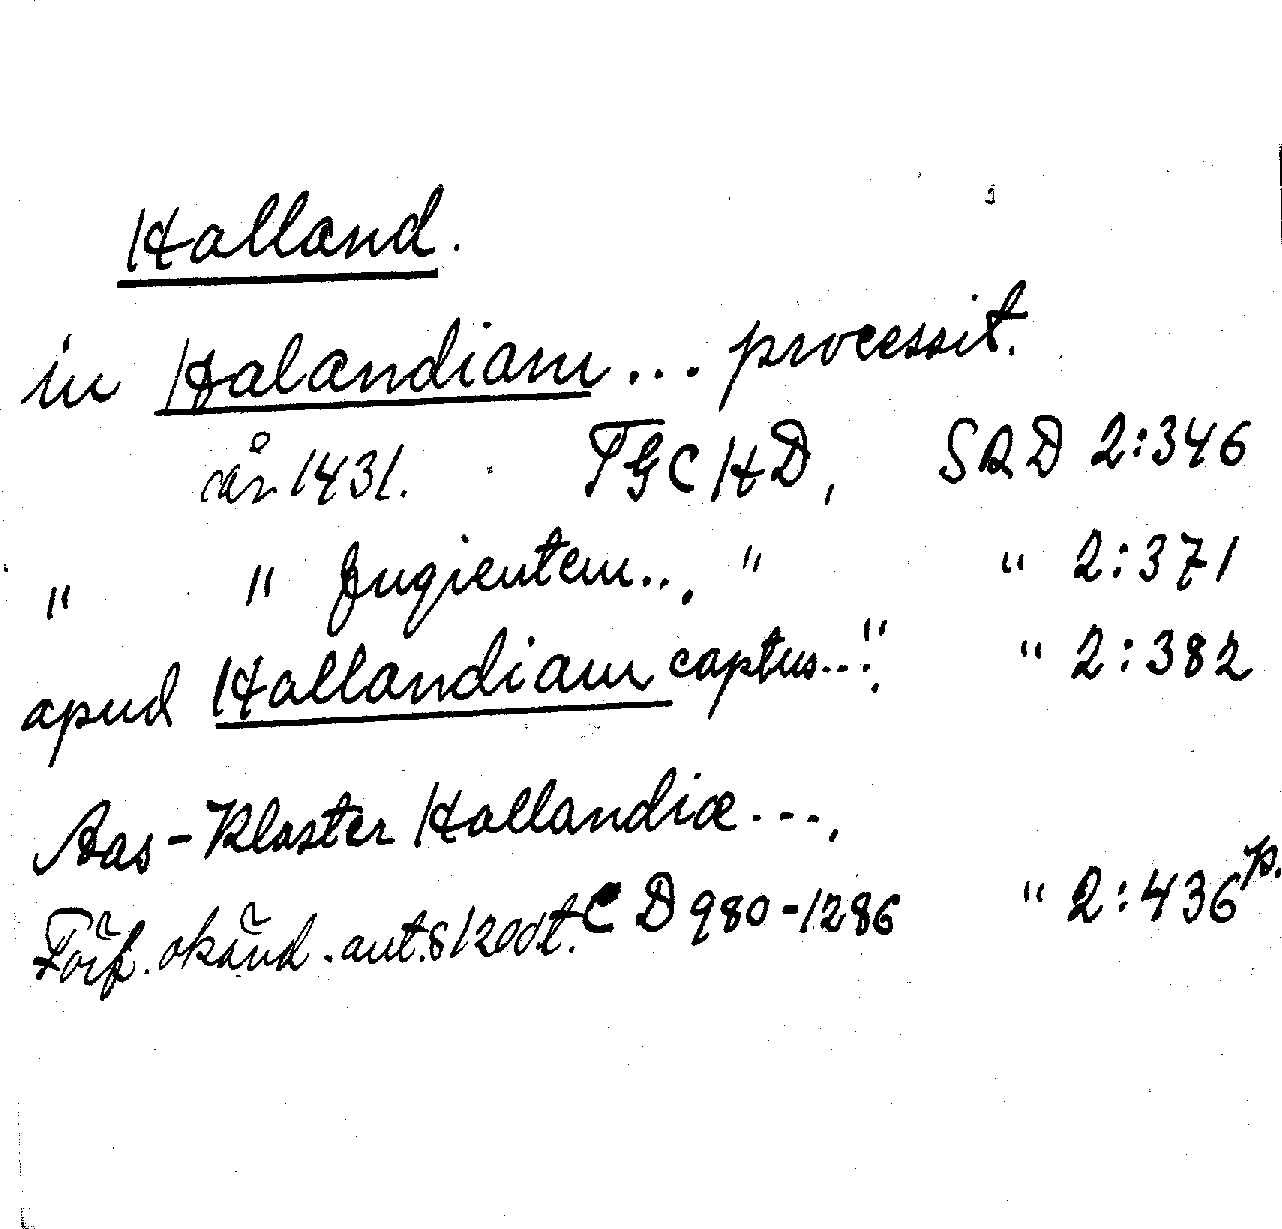 Halland.
in Halandiam ... processit.
när 1431. TGCHD, SRD 2:346
" " fugientem... " " 2:371
apud Hallandiam captus..." " 2:382
Aas-Kloster Hallandiæ ---,
Förf. okänd. ant. s 1200t. CD 980-1286 " 2:436 p.